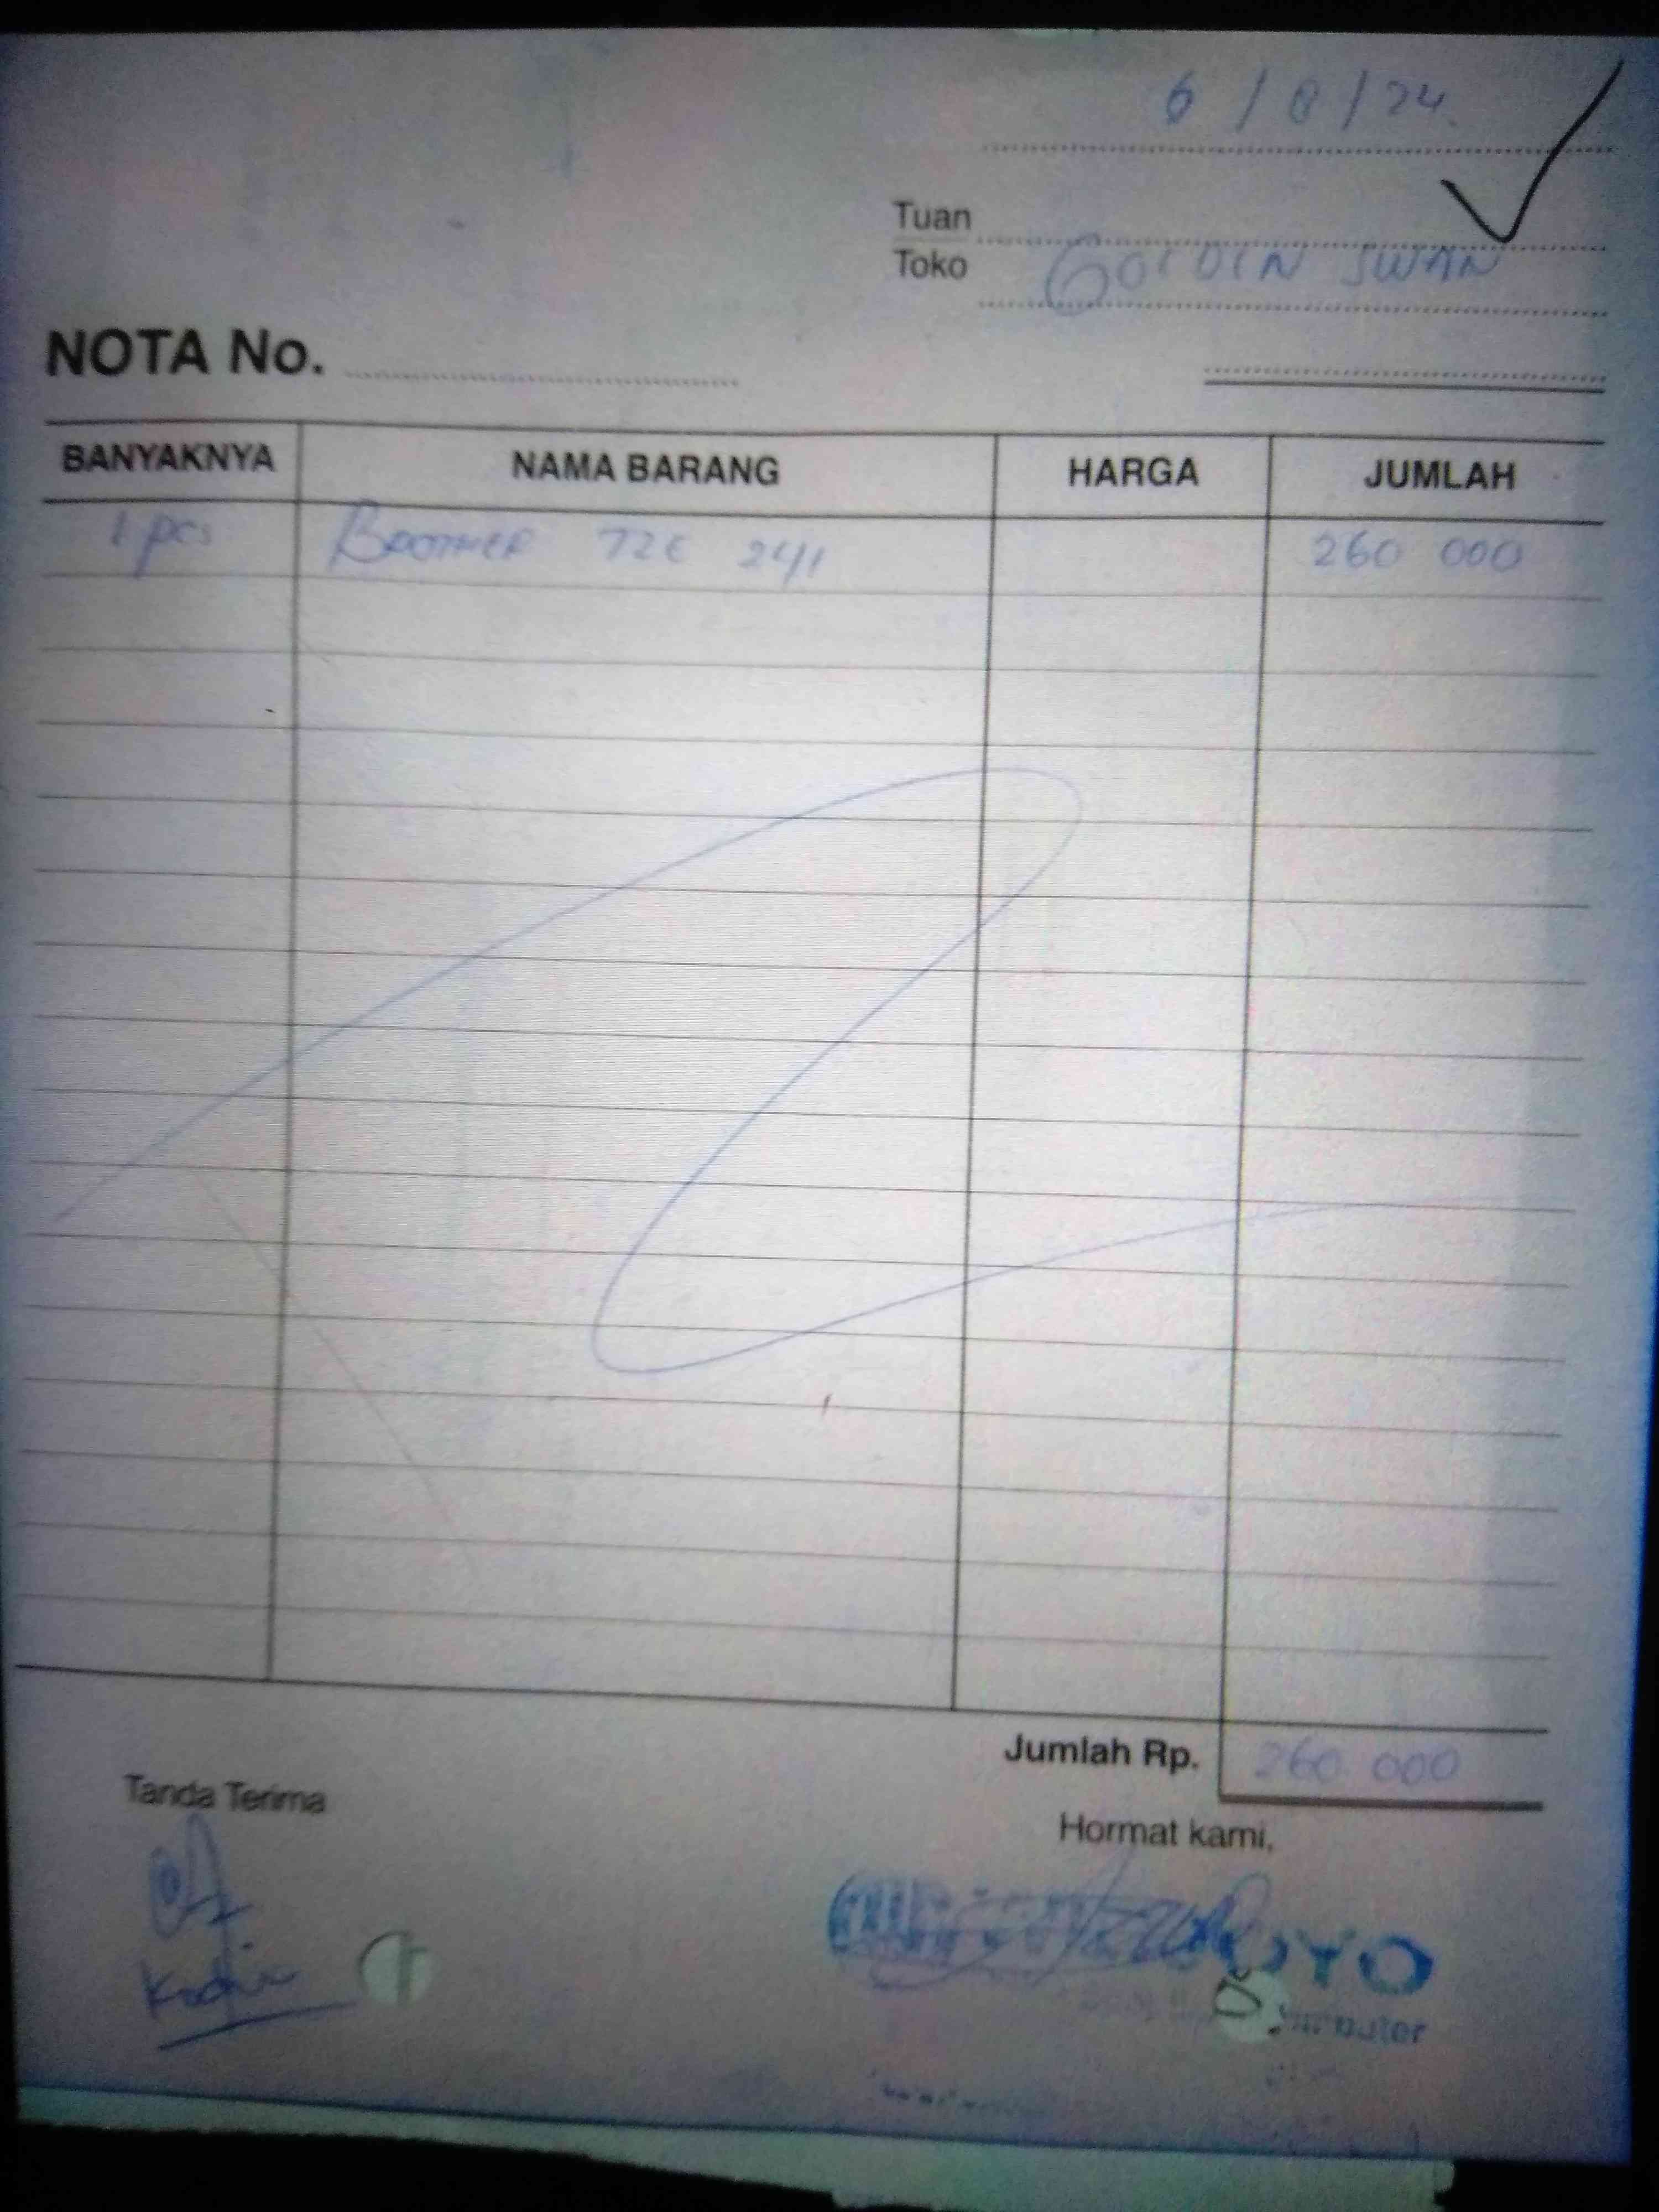 6 / 8 / 24
Tuan
Toko GOLDEN SWAN
NOTA No.
BANYAKNYA NAMA BARANG HARGA JUMLAH
1 pcs Brother TZE 241 260 000
Jumlah Rp. 260 000
Tanda Terima
Hormat kami,
OYO